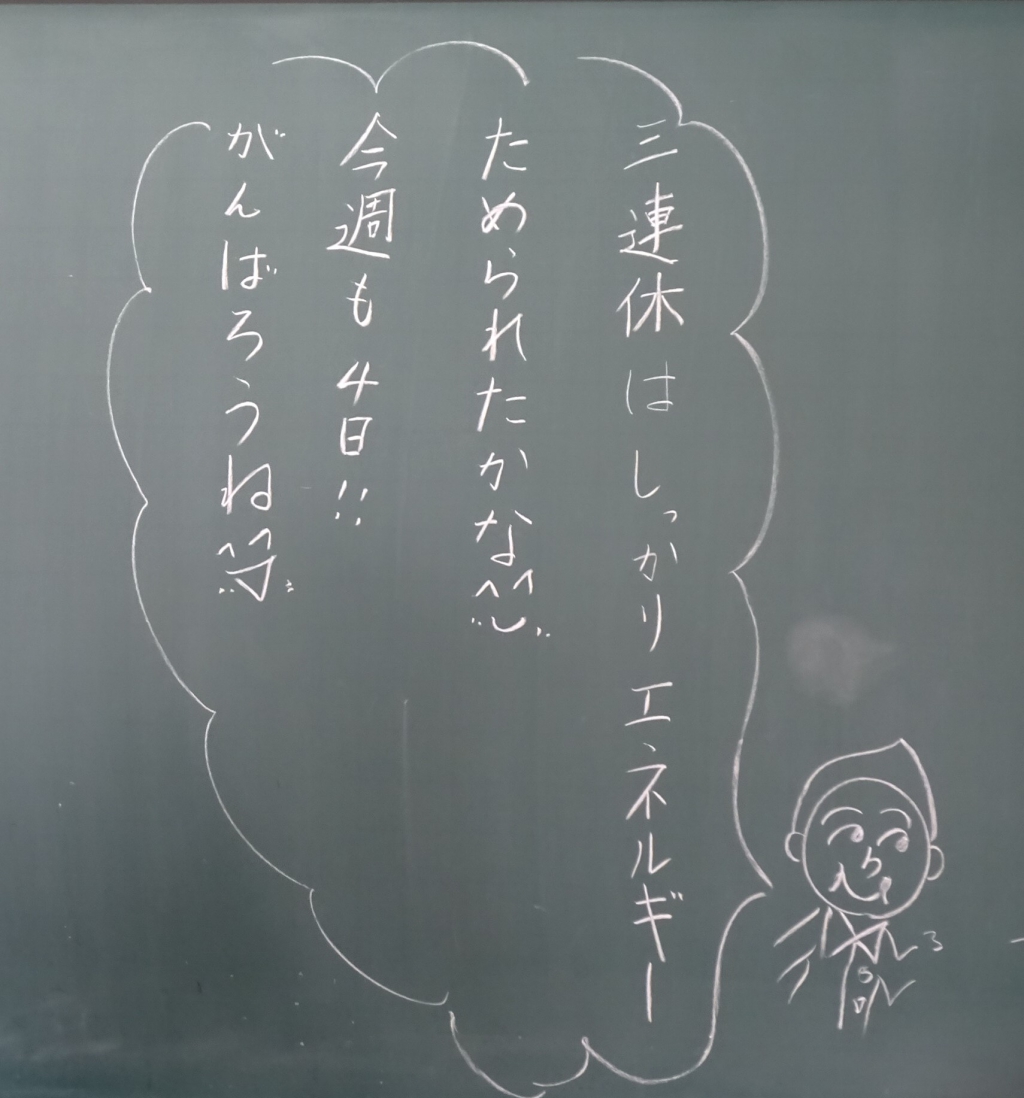 三連休はしっかりエネルギー
ためられたかな^^
今週も4日!!
がんばろうね^^